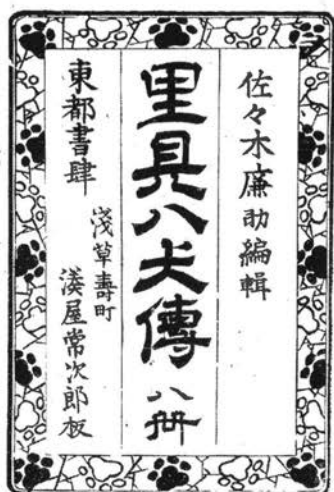 佐々木廉助編輯
里見八犬傳 八冊
東都書肆
淺草壽町
湊屋常次郎板